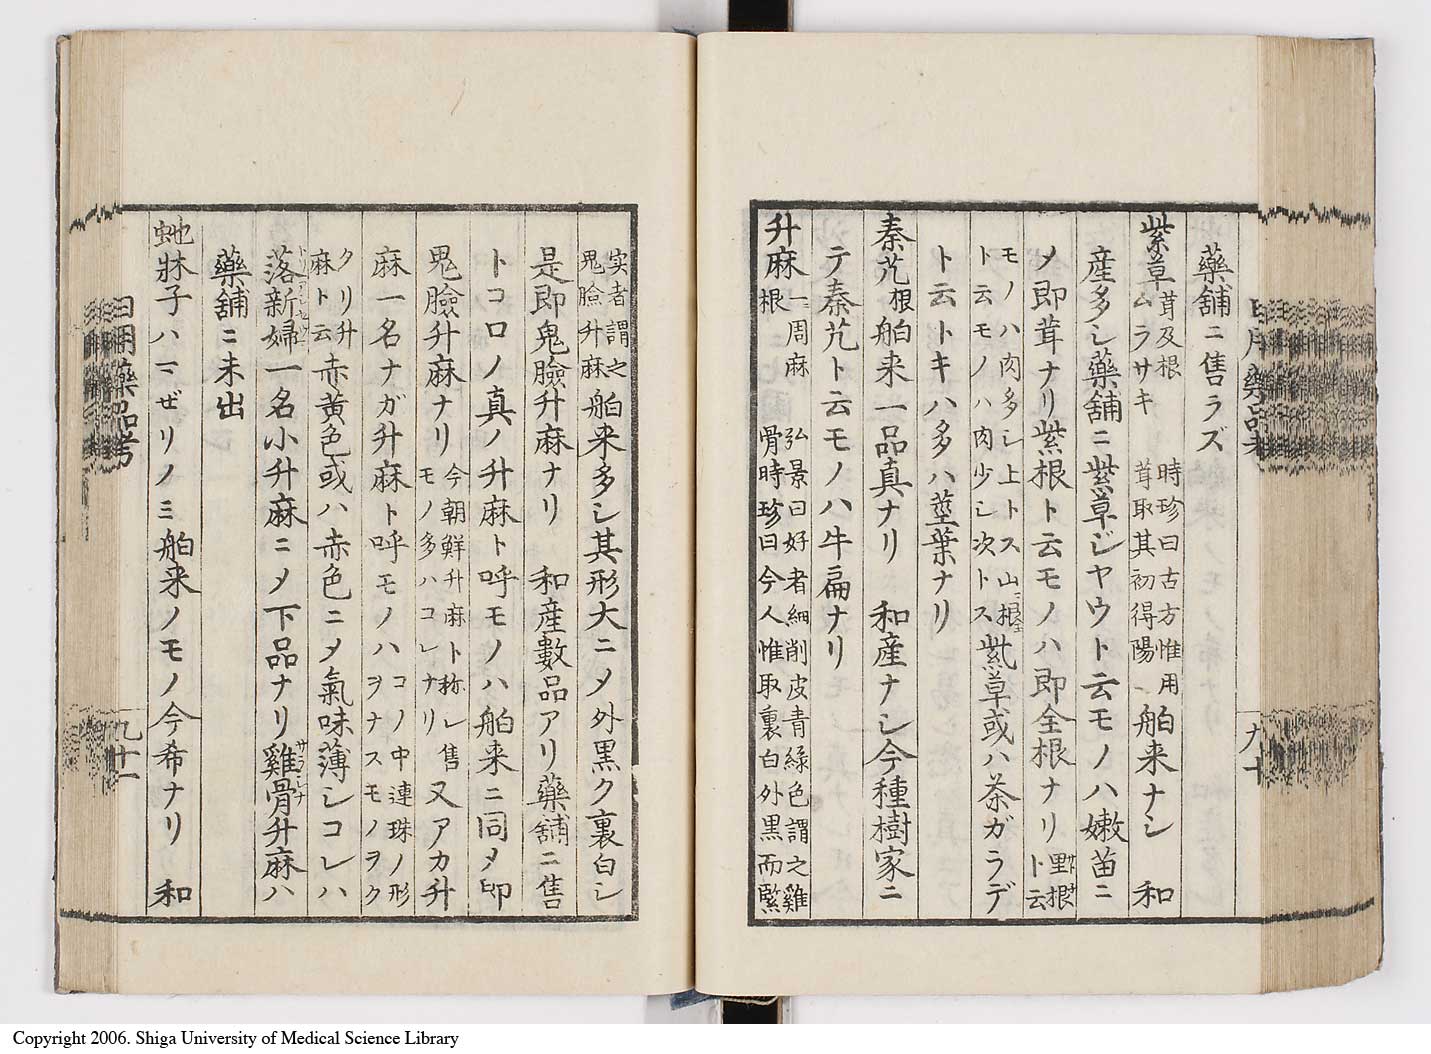 藥舗ニ售ラズ
紫草 茸及根 ムラサキ 時珍曰古方惟用茸取其初得陽 舶来ナシ 和
産多シ藥舗ニ紫草ジヤウト云モノハ嫩苗ニ
〆即茸ナリ紫根ト云モノハ即全根ナリ 里根ト云
モノハ肉多シ上トス山根ト云モノハ肉少シ次トス 紫草或ハ茶ガラデ
ト云トキハ多ハ莖葉ナリ
秦艽 根 舶来一品真ナリ 和産ナシ今種樹家ニ
テ秦艽ト云モノハ牛扁ナリ
升麻 一周麻 根 弘景曰好者細削皮青緑色謂之雞骨時珍曰今人惟取裏白外黒而緊
実者謂之鬼臉升麻 舶来多シ其形大ニ〆外黒ク裏白シ
是即鬼臉升麻ナリ 和産數品アリ藥舗ニ售
トコロノ真ノ升麻ト呼モノハ舶来ニ同〆即
鬼臉升麻ナリ 今朝鮮升麻ト称シ售モノ多ハコレナリ 又アカ升
麻一名ナガ升麻ト呼モノハ コノ中連珠ノ形ヲナスモノヲク
タリ升麻ト云 赤黄色或ハ赤色ニ〆氣味薄シコレハ
落新婦一名小升麻ニ〆下品ナリ雞骨升麻ハ サラシナ
藥舗ニ未出
虵牀子ハマゼリノミ 舶来ノモノ今希ナリ 和
日用藥品考
九十
日用藥品考
九十一
Copyright 2006. Shiga University of Medical Science Library